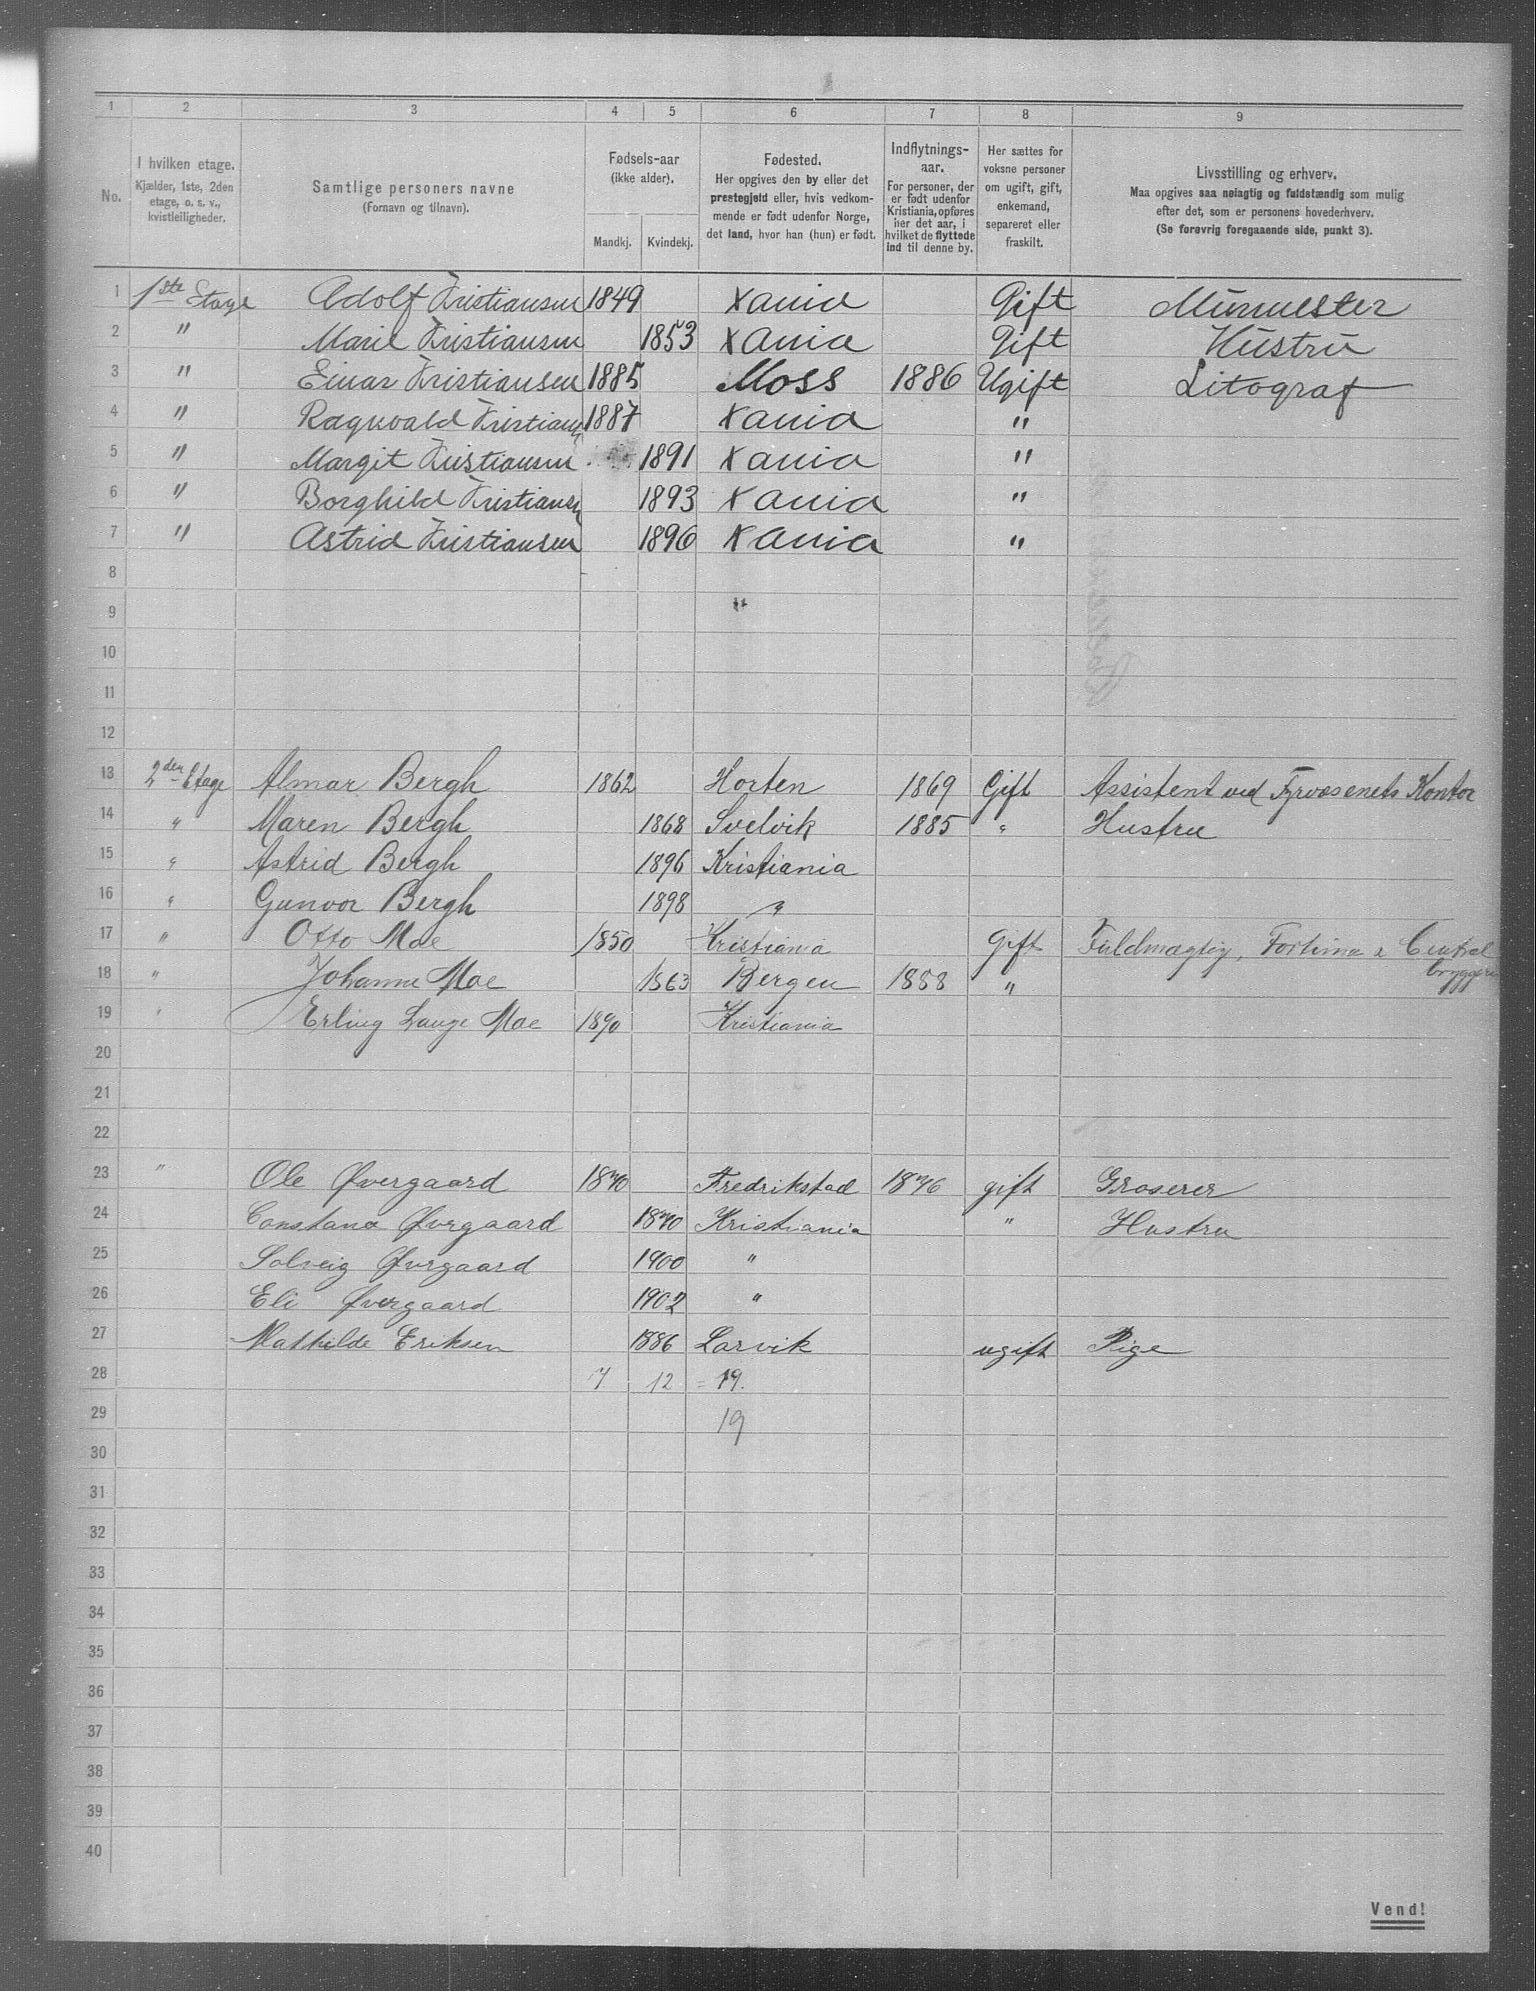 1 2 3 4 5 6 7 8 9
No.
I hvilken etage.
Kjælder, 1ste, 2den
etage, o. s. v.,
kvistleiligheder.
Samtlige personers navne
(Fornavn og tilnavn).
Fødsels-aar
(ikke alder).
Mandkj. Kvindekj.
Fødested.
Her opgives den by eller det
prestegjeld eller, hvis vedkom-
mende er født udenfor Norge,
det land, hvor han (hun) er født.
Indflytnings-
aar.
For personer, der
er født udenfor
Kristiania, opføres
her det aar, i
hvilket de flyttede
ind til denne by.
Her sættes for
voksne personer
om ugift, gift,
enkemand,
separeret eller
fraskilt.
Livsstilling og erhverv.
Maa opgives saa nøiagtig og fuldstændig som mulig
efter det, som er personens hovederhverv.
(Se forøvrig foregaaende side, punkt 3).
1 1ste Etage Adolf Kristiansen 1849 Xania Gift Murmester
2 " Marie Kristiansen 1853 Xania Gift Hustru
3 " Einar Kristiansen 1885 Moss 1886 Ugift Litograf
4 " Ragnvald Kristiansen 1887 Xania "
5 " Margit Kristiansen 1891 Xania "
6 " Borghild Kristiansen 1893 Xania "
7 " Astrid Kristiansen 1896 Xania "
8
9 "
10
11
12
13 2den Etage Almar Bergh 1862 Horten 1869 Gift Assistent ved Fyrvæsenets Kontor
14 " Maren Bergh 1868 Svelvik 1885 " Hustru
15 " Astrid Bergh 1896 Kristiania
16 " Gunvor Bergh 1898 "
17 " Otto Moe 1850 Kristiania Gift Fuldmægtig, Fortuna & Central
bryggeri
18 " Johanne Moe 1863 Bergen 1888 "
19 " Erling Lange Moe 1890 Kristiania
20
21
22
23 " Ole Øvergaard 1870 Fredrikstad 1876 gift Groserer
24 Constance Øvergaard 1870 Kristiania " Hustru
25 Solveig Øvergaard 1900 "
26 Eli Øvergaard 1902 "
27 Mathilde Eriksen 1886 Larvik ugift Pige
28 7 12 = 19.
29 19
30
31
32
33
34
35
36
37
38
39
40
Vend!